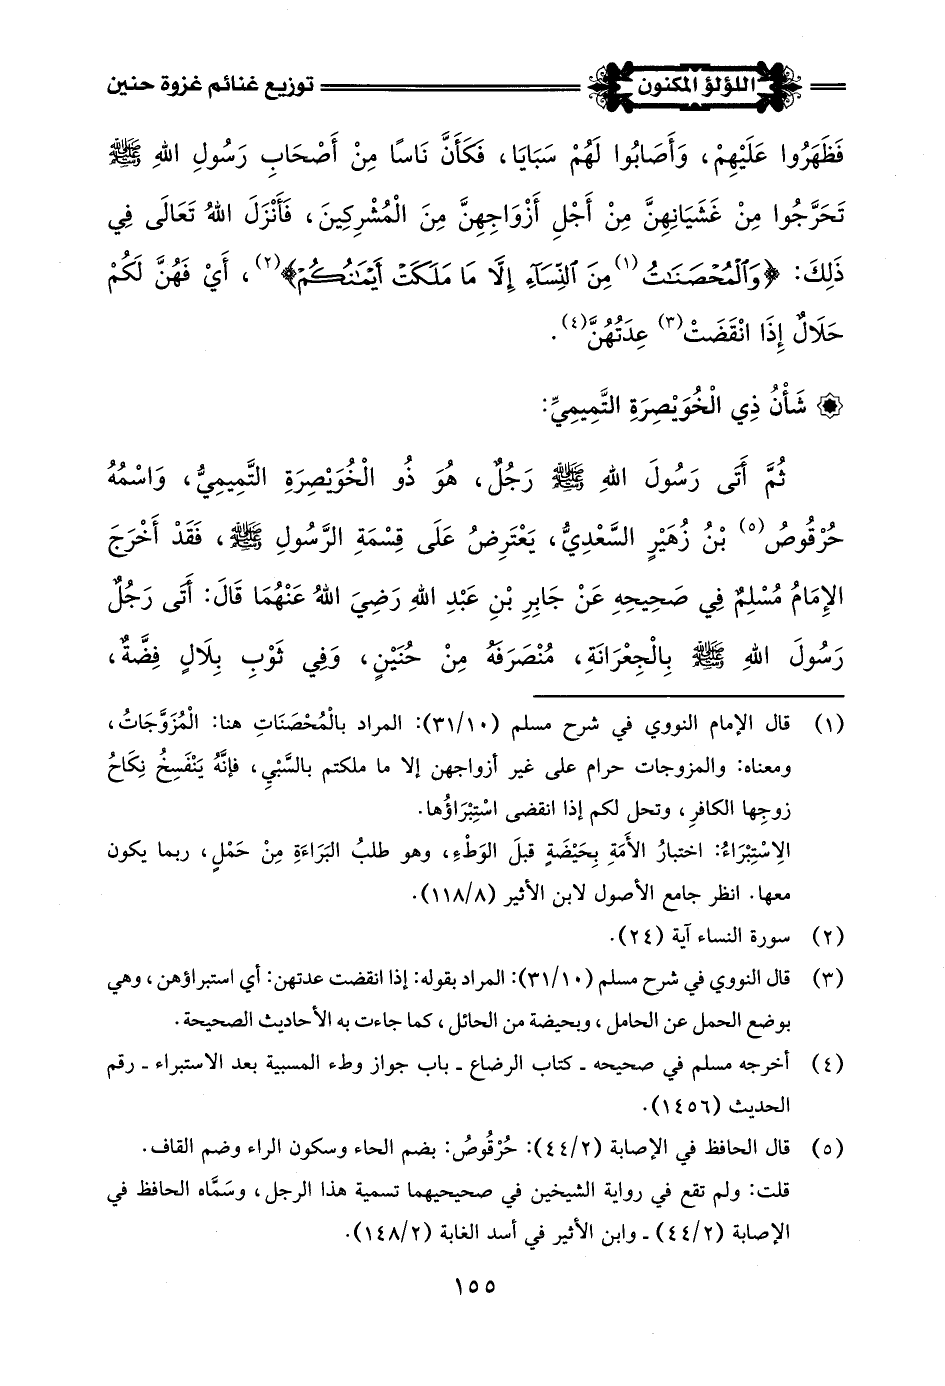 اللؤلؤ المكنون توزيع غنائم غزوة حنين
فَظَهَرُوا عَلَيْهِمْ، وَأَصَابُوا لَهُمْ سَبَايَا، فَكَأَنَّ نَاسًا مِنْ أَصْحَابِ رَسُولِ اللهِ ﷺ
تَحَرَّجُوا مِنْ غَشَيَانِهِنَّ مِنْ أَجْلِ أَزْوَاجِهِنَّ مِنَ الْمُشْرِكِينَ، فَأَنْزَلَ اللهُ تَعَالَى فِي
ذَلِكَ: ﴿وَٱلْمُحْصَنَٰتُ(١) مِنَ ٱلنِّسَآءِ إِلَّا مَا مَلَكَتْ أَيْمَٰنُكُمْ﴾(٢)، أَيْ فَهُنَّ لَكُمْ
حَلَالٌ إِذَا انْقَضَتْ(٣) عِدَتُهُنَّ(٤).
شَأْنُ ذِي الْخُوَيْصِرَةِ التَّمِيمِيِّ:
ثُمَّ أَتَى رَسُولَ اللهِ ﷺ رَجُلٌ، هُوَ ذُو الْخُوَيْصِرَةِ التَّمِيمِيُّ، وَاسْمُهُ
حُرْقُوصُ(٥) بْنُ زُهَيْرٍ السَّعْدِيُّ، يَعْتَرِضُ عَلَى قِسْمَةِ الرَّسُولِ ﷺ، فَقَدْ أَخْرَجَ
الإِمَامُ مُسْلِمٌ فِي صَحِيحِهِ عَنْ جَابِرِ بْنِ عَبْدِ اللهِ رَضِيَ اللهُ عَنْهُمَا قَالَ: أَتَى رَجُلٌ
رَسُولَ اللهِ ﷺ بِالْجِعْرَانَةِ، مُنْصَرَفَهُ مِنْ حُنَيْنٍ، وَفِي ثَوْبِ بِلَالٍ فِضَّةٌ،
(١) قال الإمام النووي في شرح مسلم (٣١/١٠): المراد بالْمُحْصَنَاتِ هنا: الْمُزَوَّجَاتُ،
ومعناه: والمزوجات حرام على غير أزواجهن إلا ما ملكتم بالسَّبْيِ، فإنَّهُ يَنْفَسِخُ نِكَاحُ
زوجِها الكافرِ، وتحل لكم إذا انقضى اسْتِبْرَاؤُها.
الِاسْتِبْرَاءُ: اختبارُ الأَمَةِ بِحَيْضَةٍ قبلَ الوَطْءِ، وهو طلبُ البَرَاءَةِ مِنْ حَمْلٍ، ربما يكون
معها. انظر جامع الأصول لابن الأثير (١١٨/٨).
(٢) سورة النساء آية (٢٤).
(٣) قال النووي في شرح مسلم (٣١/١٠): المراد بقوله: إذا انقضت عدتهن: أي استبراؤهن، وهي
بوضع الحمل عن الحامل، وبحيضة من الحائل، كما جاءت به الأحاديث الصحيحة.
(٤) أخرجه مسلم في صحيحه ـ كتاب الرضاع ـ باب جواز وطء المسبية بعد الاستبراء ـ رقم
الحديث (١٤٥٦).
(٥) قال الحافظ في الإصابة (٤٤/٢): حُرْقُوصُ: بضم الحاء وسكون الراء وضم القاف.
قلت: ولم تقع في رواية الشيخين في صحيحيهما تسمية هذا الرجل، وسَمَّاه الحافظ في
الإصابة (٤٤/٢) ـ وابن الأثير في أسد الغابة (١٤٨/٢).
١٥٥